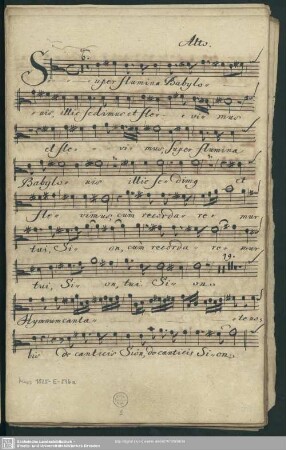 Alto.
Super flumina Babylo-
nis, illic sedimus et fle- vimus
et fle- vimus, super flumina
Babylo- nis illic sedimus et
fle- vimus, cum recorda- re- mur
tui, Si- on, cum recorda- re- mur
tui, Si- on, tui Si- on.
19.
Hymnum canta- te no-
bis de canticis Sion, de canticis Si-on.
Mus 1825-E-516a
2